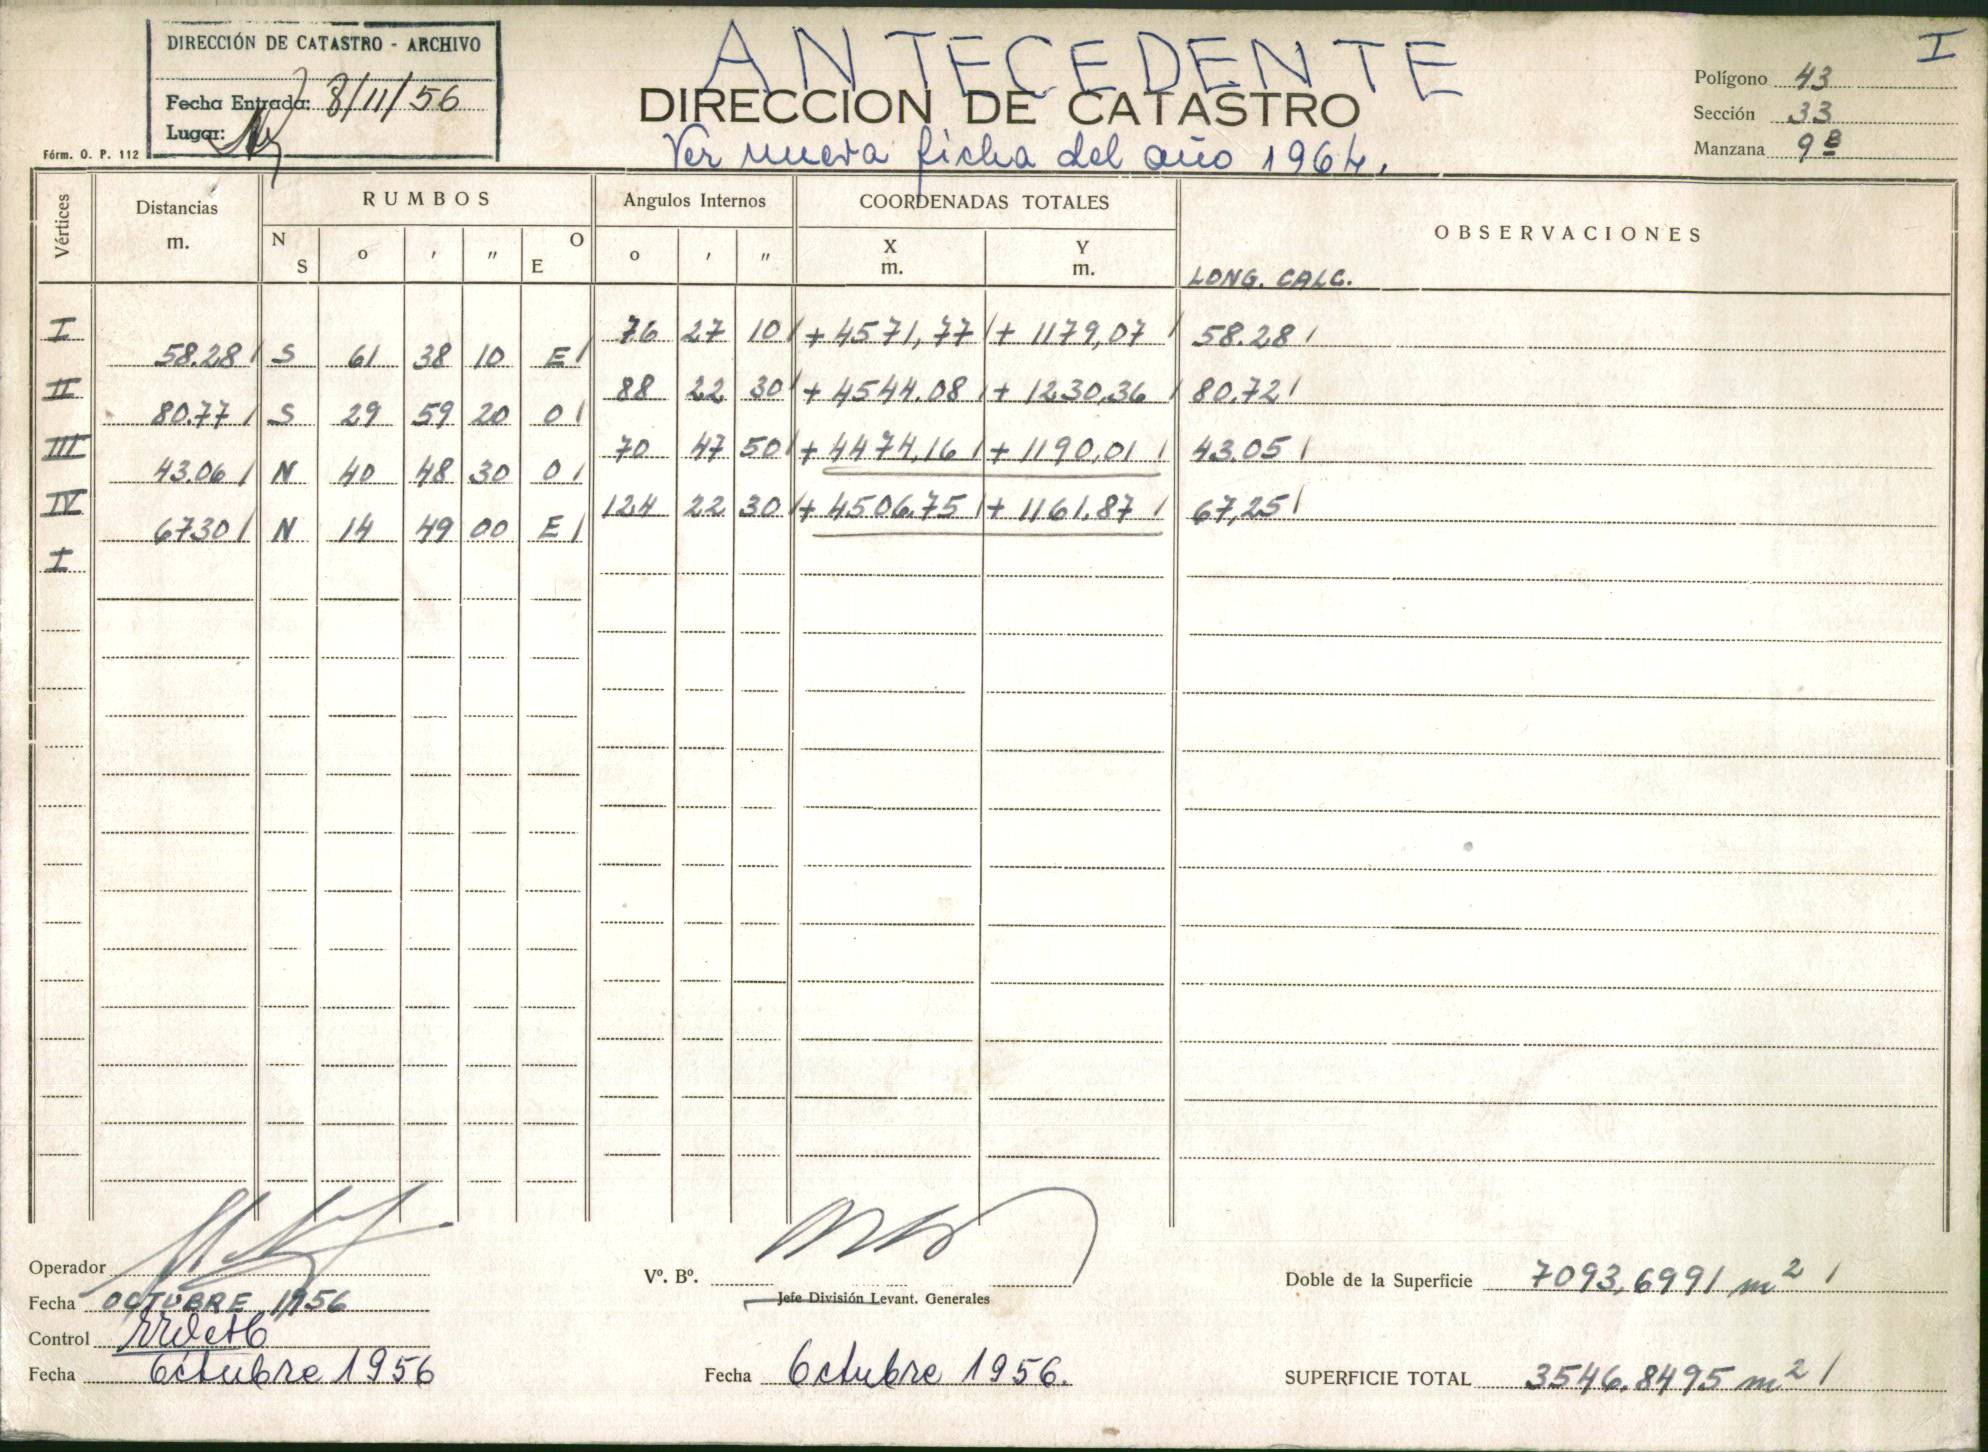 DIRECCIÓN DE CATASTRO - ARCHIVO
Fecha Entrada: 8/11/56
Lugar:
Fórm. O. P. 112
ANTECEDENTE
DIRECCION DE CATASTRO
Ver nueva ficha del año 1964.
I
Polígono 43
Sección 33
Manzana 9B
Vértices
Distancias
m.
RUMBOS
N S
o
'
"
O E
Angulos Internos
o
'
"
COORDENADAS TOTALES
X
m.
Y
m.
OBSERVACIONES
LONG. CALC.
I 76 27 10 / + 4571,77 / + 1179,07 / 58.28 /
58.28 / S 61 38 10 E /
II 88 22 30 / + 4544.08 / + 1230,36 / 80.72 /
80.77 / S 29 59 20 O /
III 70 47 50 / + 4474,16 / + 1190,01 / 43.05 /
43.06 / N 40 48 30 O /
IV 124 22 30 / + 4506.75 / + 1161.87 / 67,25 /
67.30 / N 14 49 00 E /
I
Operador
Fecha OCTUBRE 1956
Control
Fecha Octubre 1956
Vº. Bº.
Jefe División Levant. Generales
Fecha Octubre 1956.
Doble de la Superficie 7093,6991 m2 /
SUPERFICIE TOTAL 3546.8495 m2 /